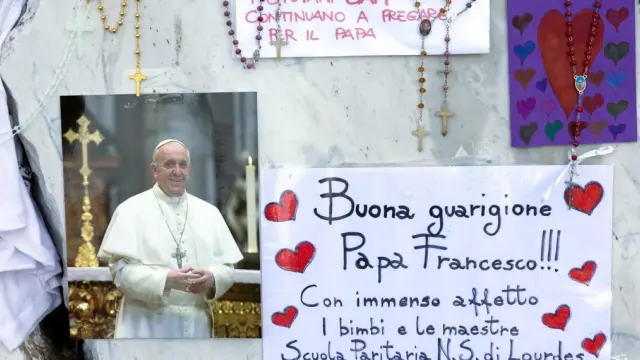 CONTINUANO A PREGARE
PER IL PAPA
Buona guarigione
Papa Francesco!!!
Con immenso affetto
I bimbi e le maestre
Scuola Paritaria N.S. di Lourdes